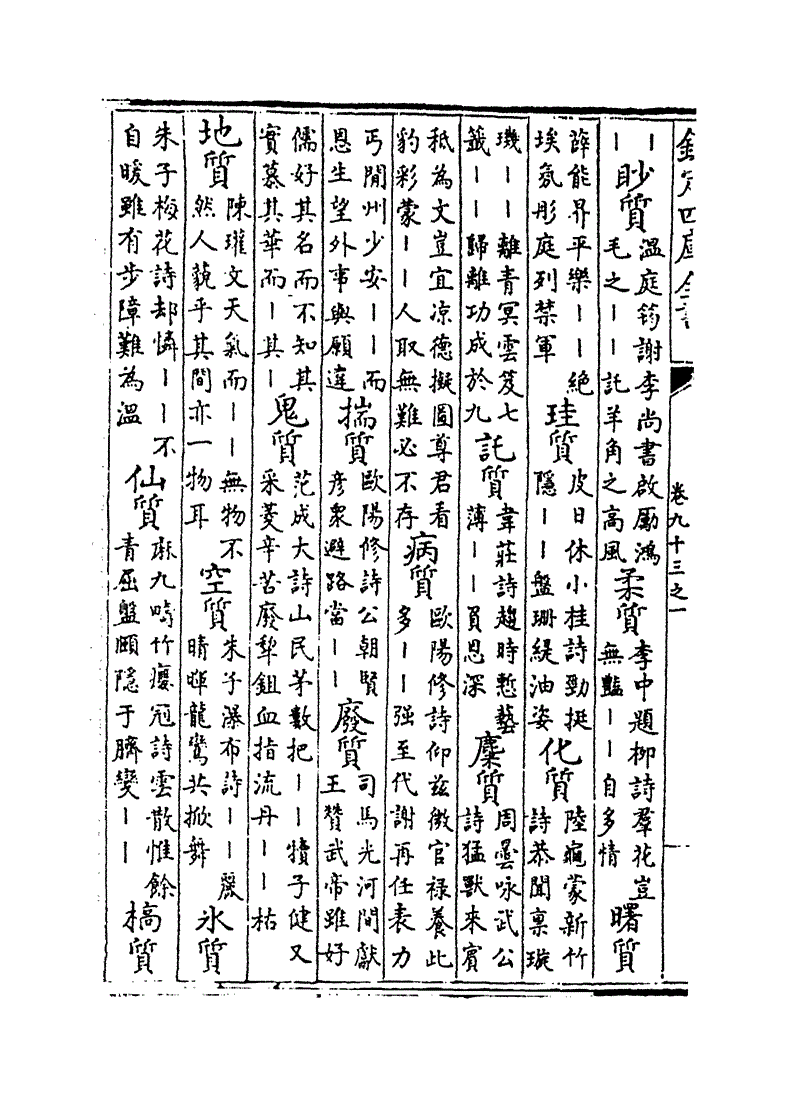 欽定四庫全書
卷九十三之一
丨
丨
眇質
溫庭筠謝李尚書啟勵鴻
毛之丨丨託羊角之高風
柔質
李中題柳詩羣花豈
無豔丨丨自多情
曙質
薛能昇平樂丨丨絶
埃氛彤庭列禁軍
珪質
皮日休小桂詩勁挺
隱丨丨盤珊緹油姿
化質
陸龜蒙新竹
詩恭聞稟璇
璣丨丨離青冥雲笈七
籤丨丨歸離功成於九
託質
韋莊詩趨時慙藝
薄丨丨負恩深
麇質
周曇咏武公
詩猛獸來賓
秪為文豈宜凉德擬圖尊君看
豹彩蒙丨丨人取無難必不存
病質
歐陽修詩仰兹微官禄養此
多丨丨强至代謝再任表力
丐閒州少安丨丨而
恩生望外事與願違
揣質
歐陽修詩公朝賢
彦衆避路當丨丨
廢質
司馬光河間獻
王贊武帝雖好
儒好其名而不知其
實慕其華而丨其丨
鬼質
范成大詩山民茅數把丨丨犢子健又
采菱辛苦廢犂鉏血指流丹丨丨枯
地質
陳瓘文天氣而丨丨無物不
然人藐乎其間亦一物耳
空質
朱子瀑布詩丨丨麗
晴暉龍鸞共掀舞
氷質
朱子梅花詩却憐丨丨不
自暖雖有步障難為温
仙質
麻九疇竹癭冠詩雲散惟餘
青屈盤頤隱于臍變丨丨
槁質